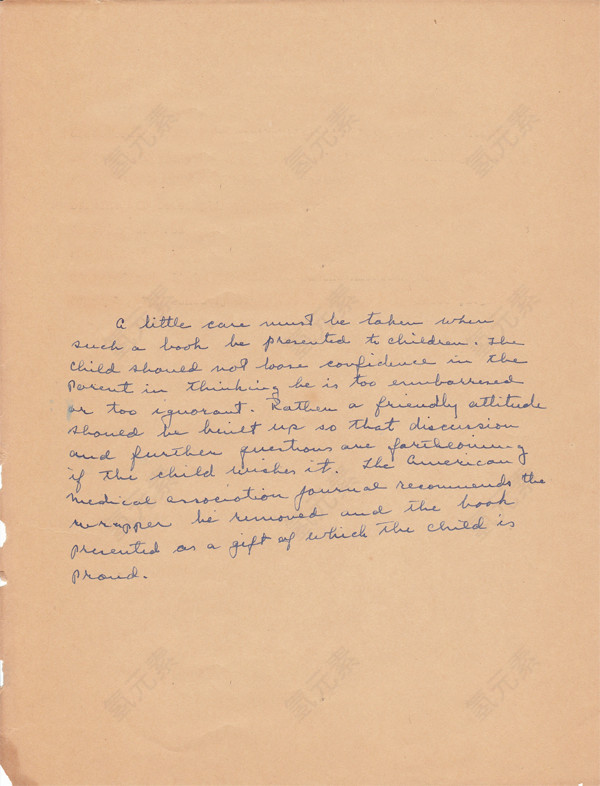 A little care must be taken when
such a book be presented to children. The
child should not loose confidence in the
parent in thinking he is too embarresed
or too ignorant. Rather a friendly attitude
should be built up so that discussion
and further questions are forthcoming
if the child wishes it. The American
medical association journal recommends the
wrapper be removed and the book
presented as a gift of which the child is
proud.
氢元素 氢元素 氢元素
氢元素 氢元素 氢元素
氢元素 氢元素 氢元素
氢元素 氢元素 氢元素